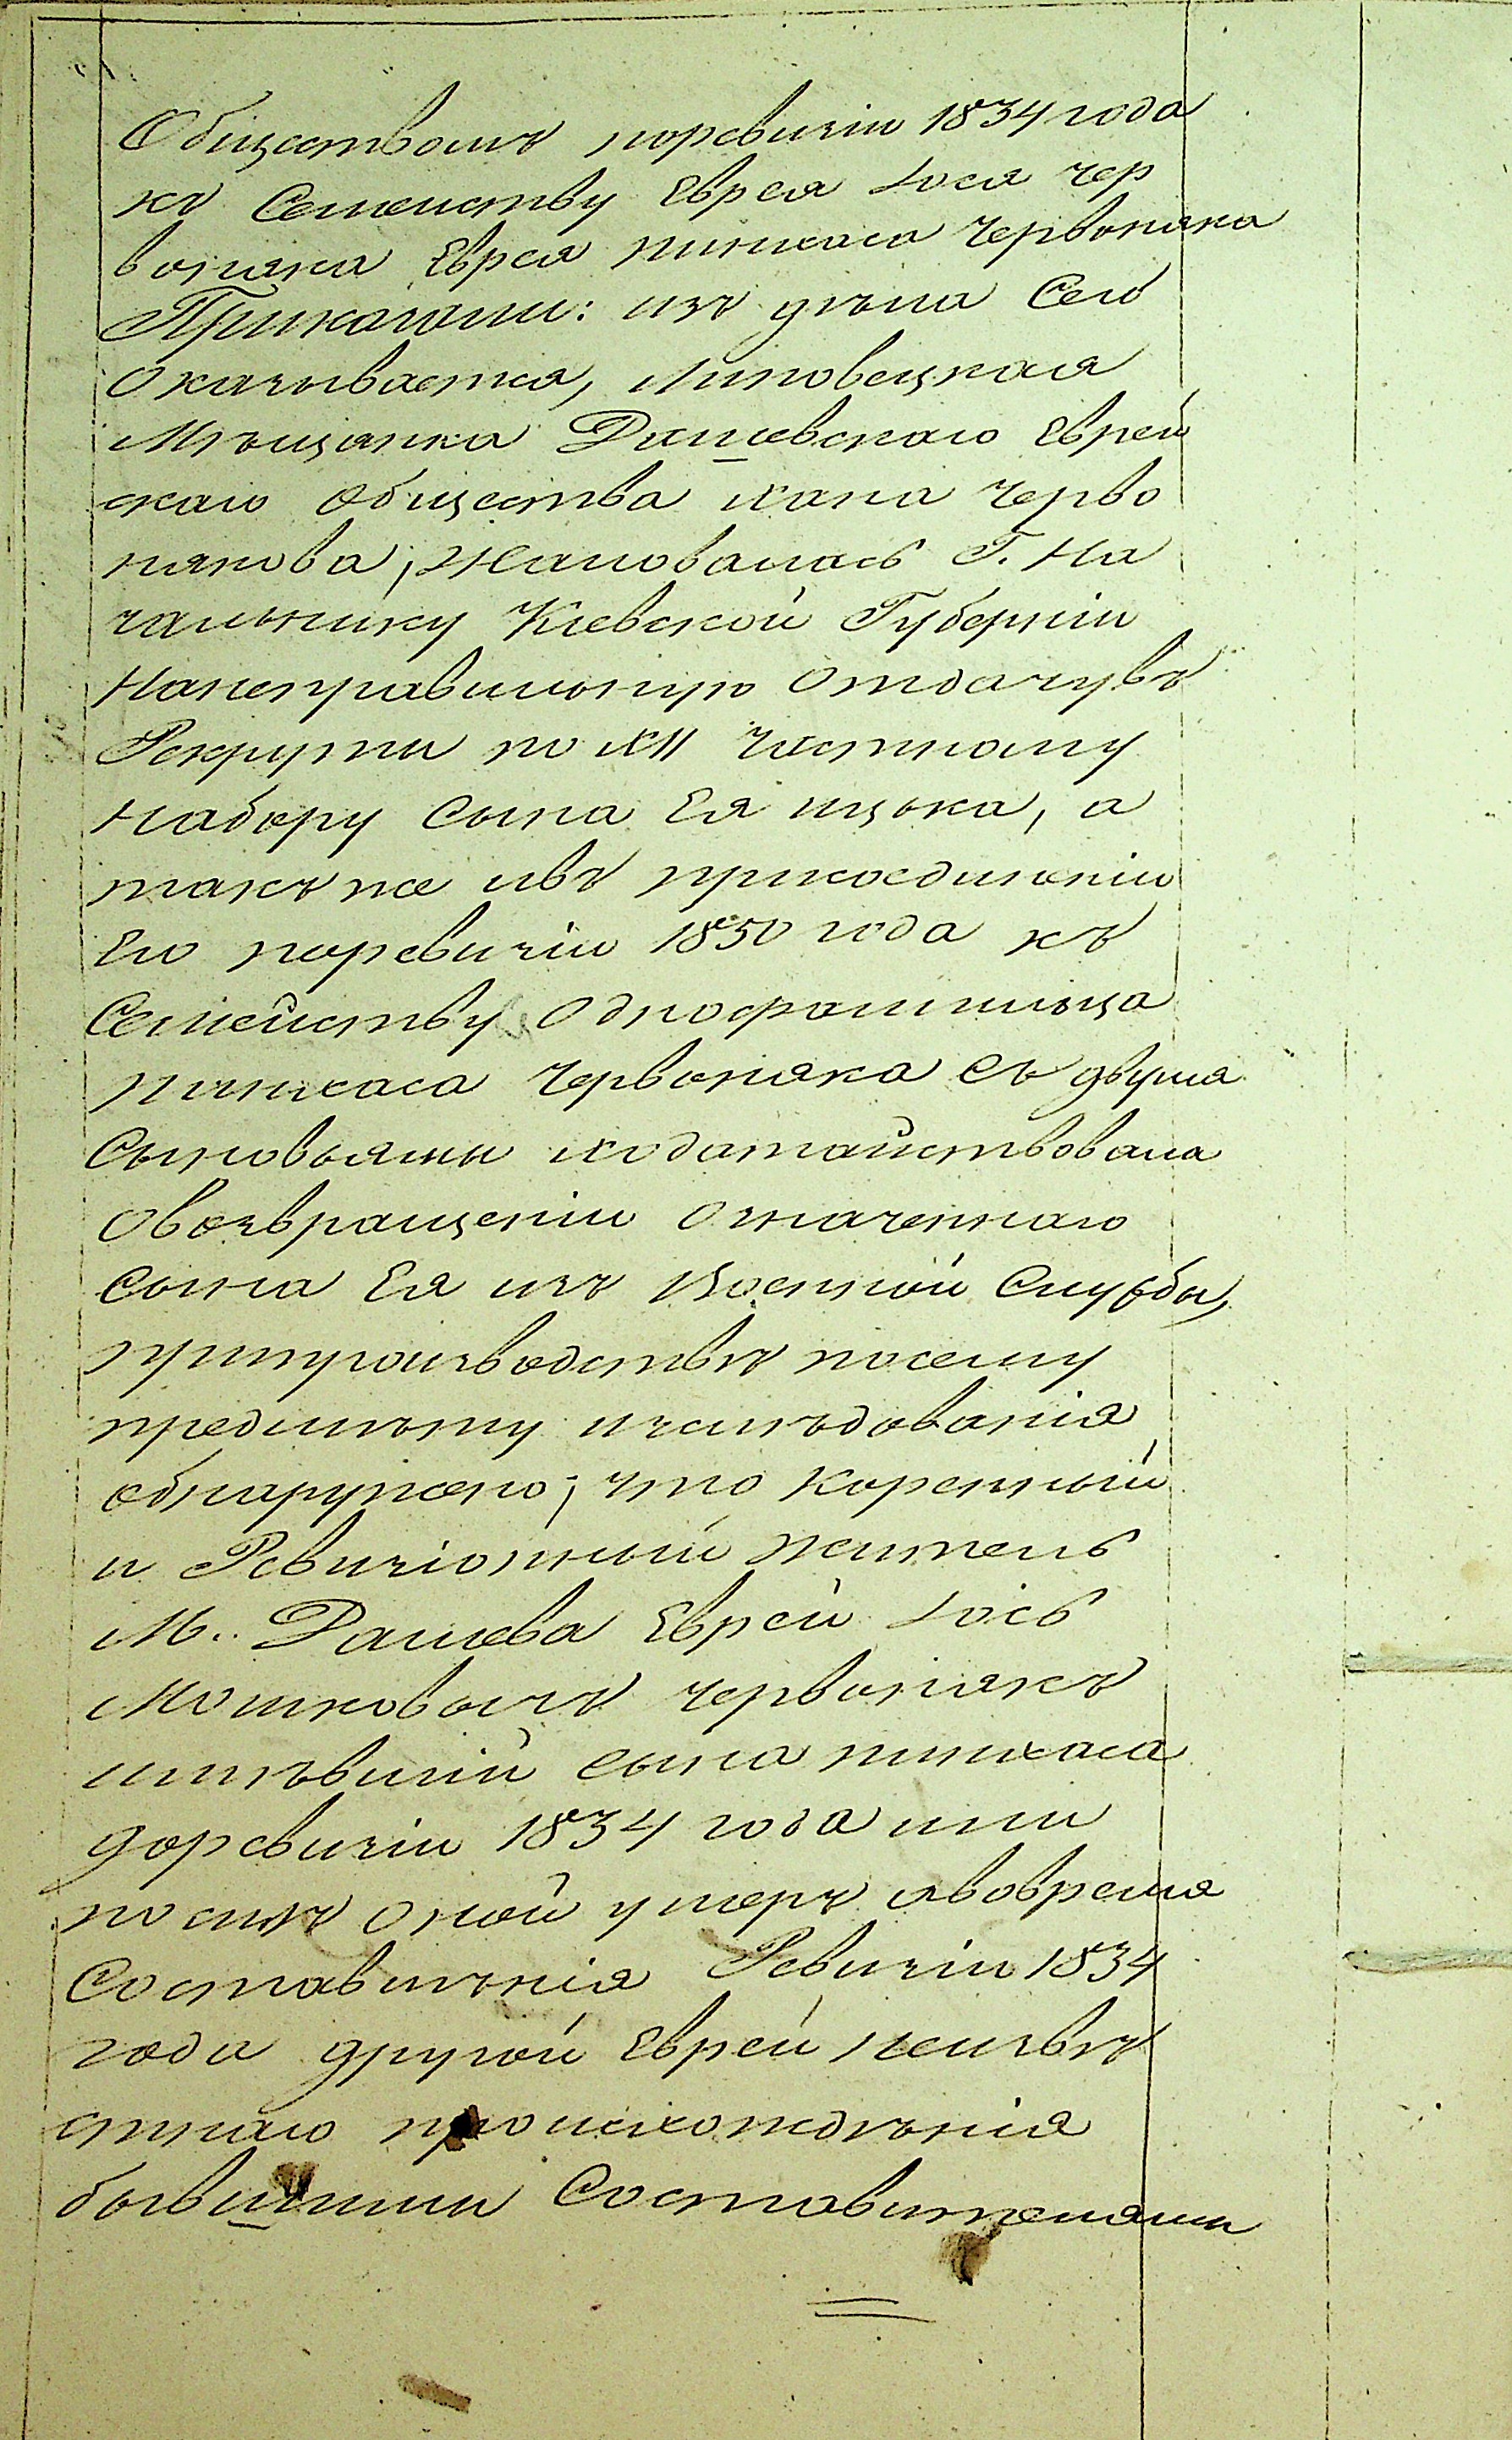 Обществомъ поревизіи 1834 года
къ Семейству Еврея Іося Чер
воняка Еврея пинхаса Червоняка
Приказали: изъ дѣла Сего
Оказывается, Липовецкая
Мѣщанка Дашевскаго Еврей
скаго Общества хана Черво
някова, Жаловалась Г. На
чальнику Кіевской Губерніи
Нанеправильную Отдачувъ
Рекруты по XII частному
Набору Сына Ея ицька, а
такъ же ивъ присоединеніи
Его поревизіи 1850 года къ
Семейству Однофамильца
пинхаса Червоняка Съ двумя
Сыновьями ходатайствовала
Овозвращеніи Означеннаго
Сына Ея изъ Военной Службы,
припроизводствѣ посему
предмѣту изслѣдованія
обнаружено, что Коренный
и Ревизіонный Житель
М. Дашева Еврей Іось
Мошковычъ Червонякъ
имѣвшій Сына пинхаса
доревизіи 1834 года или
послѣ Оной умеръ авовремя
Составлѣнія Ревизіи 1834
года другой Еврей неизвѣ
стнаго происхождѣнія
бывшими Составителями